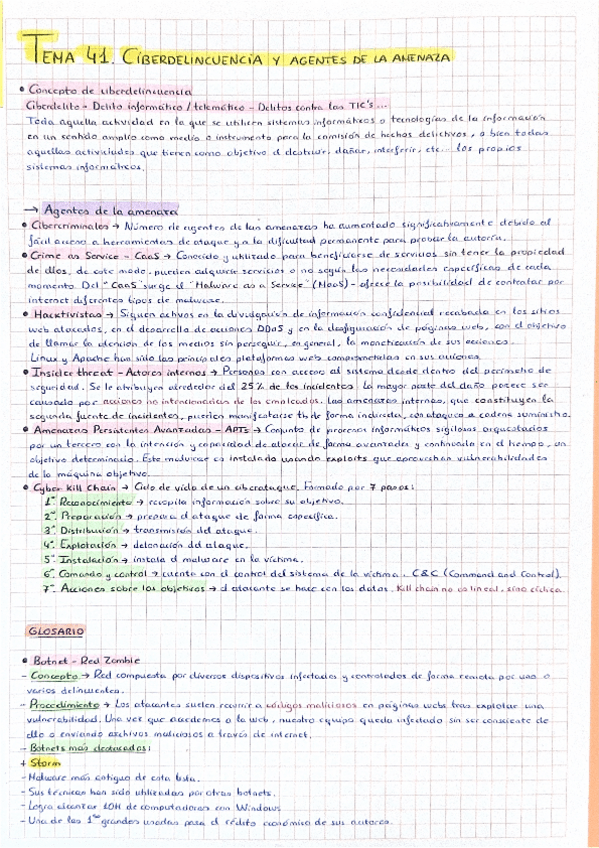 TEMA 41. CIBERDELINCUENCIA Y AGENTES DE LA AMENAZA
• Concepto de ciberdelincuencia
Ciberdelito - Delito informático / telemático - Delitos contra las TIC's...
Toda aquella actividad en la que se utilicen sistemas informáticos o tecnologías de la información
en un sentido amplio como medio o instrumento para la comisión de hechos delictivos, o bien todas
aquellas actividades que tienen como objetivo el destruir, dañar, interferir, etc... los propios
sistemas informáticos.
→ Agentes de la amenaza
• Cibercriminales → Número de agentes de las amenazas ha aumentado significativamente debido al
fácil acceso a herramientas de ataque y a la dificultad permanente para probar la autoría.
• Crime as Service - CaaS → Conocido y utilizado para beneficiarse de servicios sin tener la propiedad
de ellos, de este modo, pueden adquirir servicios o no según las necesidades específicas de cada
momento. Del "CaaS" surge el "Malware as a Service" (MaaS) - ofrece la posibilidad de contratar por
internet diferentes tipos de malware.
• Hacktivistas → Siguen activos en la divulgación de información confidencial recabada en los sitios
web atacados, en el desarrollo de acciones DDoS y en la desfiguración de páginas web, con el objetivo
de llamar la atención de los medios sin perseguir, en general, la monetización de sus acciones.
Linux y Apache han sido las principales plataformas web comprometidas en sus acciones.
• Insider threat - Actores internos → Personas con acceso al sistema desde dentro del perímetro de
seguridad. Se le atribuyen alrededor del 25% de los incidentes, la mayor parte del daño parece ser
causado por acciones no intencionadas de los empleados. Las amenazas internas, que constituyen la
segunda fuente de incidentes, pueden manifestarse tb de forma indirecta, con ataques a cadena suministro.
• Amenazas Persistentes Avanzadas - APTs → Conjunto de procesos informáticos sigilosos orquestados
por un tercero con la intención y capacidad de atacar de forma avanzada y continuada en el tiempo, un
objetivo determinado. Este malware es instalado usando exploits que aprovechan vulnerabilidades
de la máquina objetivo.
• Cyber Kill Chain → Ciclo de vida de un ciberataque, formado por 7 pasos:
1º. Reconocimiento → recopila información sobre su objetivo.
2º. Preparación → prepara el ataque de forma específica.
3º. Distribución → transmisión del ataque.
4º. Explotación → detonación del ataque.
5º. Instalación → instala el malware en la víctima.
6º. Comando y control → cuenta con el control del sistema de la víctima. C&C (Command and Control).
7º. Acciones sobre los objetivos → el atacante se hace con los datos. Kill chain no es lineal, sino cíclica.
GLOSARIO
• Botnet - Red Zombie
- Concepto → Red compuesta por diversos dispositivos infectados y controlados de forma remota por uno o
varios delincuentes.
- Procedimiento → Los atacantes suelen recurrir a códigos maliciosos en páginas webs tras explotar una
vulnerabilidad. Una vez que accedemos a la web, nuestro equipo queda infectado sin ser consciente de
ello o enviando archivos maliciosos a través de internet.
- Botnets más destacados:
+ Storm
- Malware más antiguo de esta lista.
- Sus técnicas han sido utilizadas por otras botnets.
- Logra alcanzar 10M de computadoras con Windows
- Una de las 1ªˢ grandes usadas para el rédito económico de sus autores.